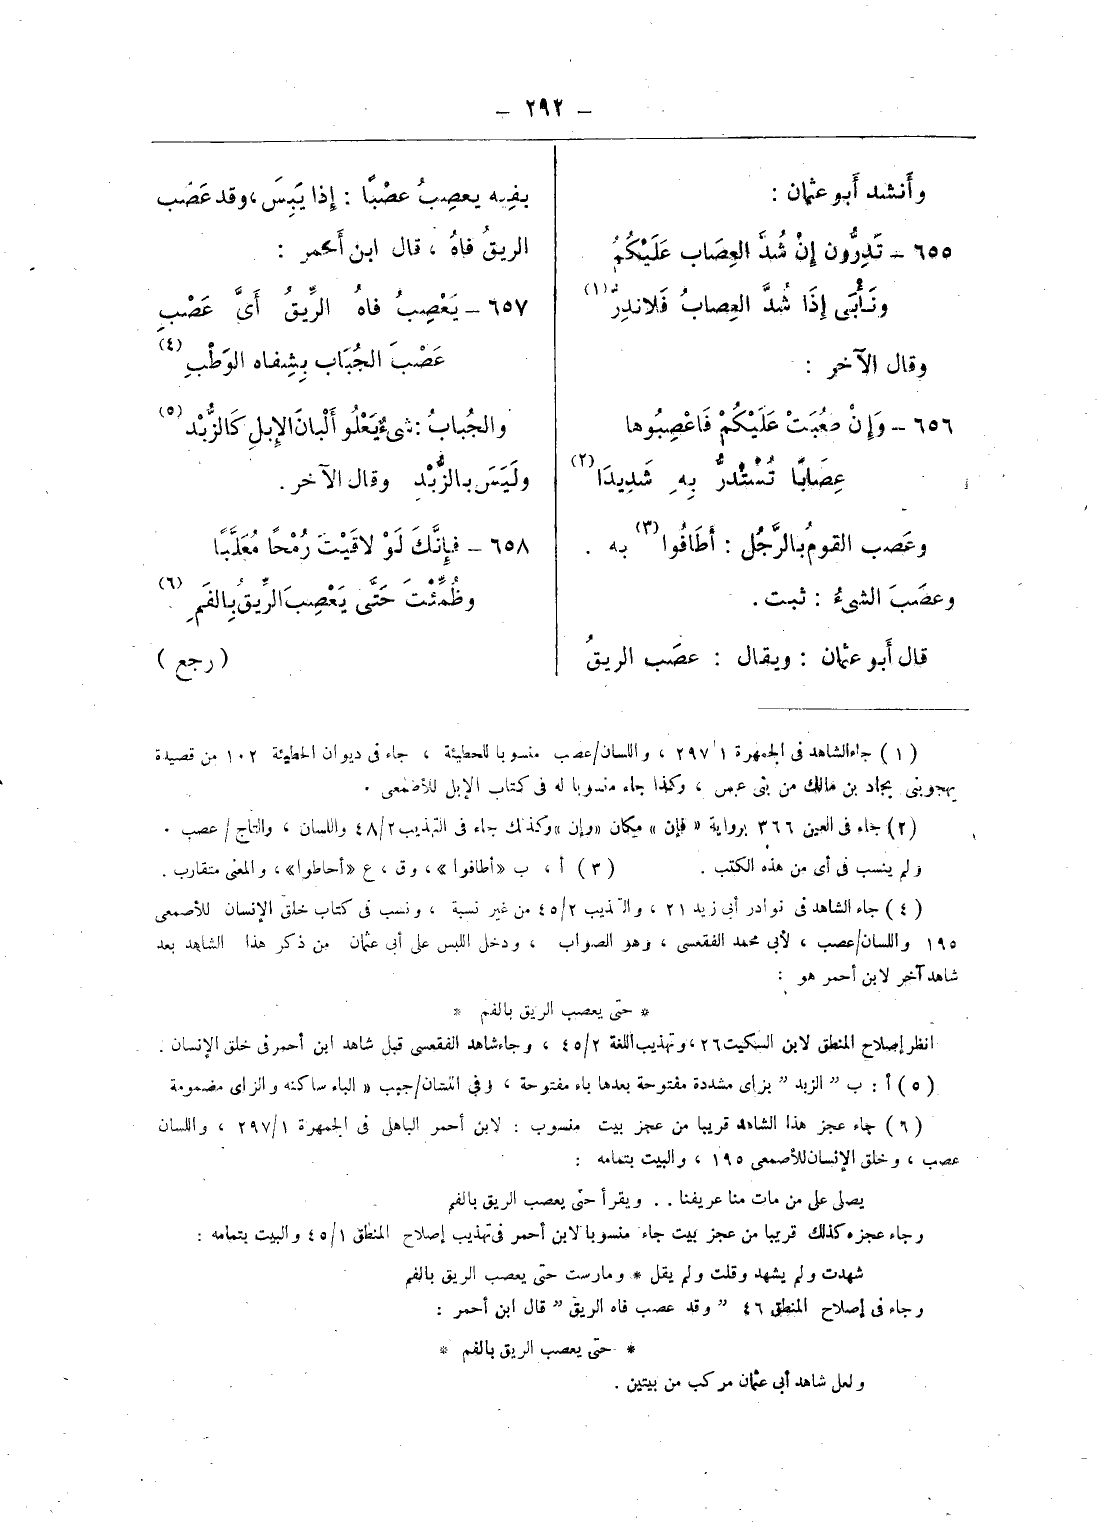 – ٢٩٢ –
وأنشد أبو عثمان :
٦٥٥ – تَدِرُّون إِنْ شُدَّ العِصَاب عَلَيْكُمُ
ونَأْبَى إِذَا شُدَّ العِصابُ فَلاندِرُّ (١)
وقال الآخر :
٦٥٦ – وَإِنْ صعُبَتْ عَلَيْكُمْ فَاعْصِبُوها
عِصَابًا تُسْتَدرُّ بِهِ شَدِيدَا (٢)
وعَصب القومُ بالرَّجُل : أَطَافُوا (٣) به .
وعصَبَ الشىءُ : ثبت .
قال أَبو عثمان : ويقال : عصَب الريقُ
بفيه يعصِبُ عصْبًا : إِذا يَبِسَ ، وقد عَصَب
الريقُ فاهُ ، قال ابن أَحمر :
٦٥٧ – يَعْصِبُ فاهُ الرِّيقُ أَىَّ عَصْبِ
عَصْبَ الجُبَاب بِشِفاه الوَطْبِ (٤)
والجُبابُ : شىءٌ يَعْلُو أَلْبانَ الإِبلِ كَالزُّبْد (٥)
ولَيَسَ بالزُّبْدِ وقال الآخر .
٦٥٨ – فإِنَّكَ لَوْ لاقَيْتَ رُمْحًا مُعَلَّبًا
وظُمِّئْتَ حَتَّى يَعْصِبَ الرِّيقُ بِالفَمِ (٦)
( رجع )
( ١ ) جاء الشاهد فى الجمهرة ١ / ٢٩٧ ، واللسان/عصب منسوبا للحطيئة ، جاء فى ديوان الحطيئة ١٠٢ من قصيدة
يهجو بنى بجاد بن مالك من بنى عبس ، وكذا جاء منسوبا له فى كتاب الإبل للأصمعى .
( ٢ ) جاء فى العين ٣٦٦ برواية « فإن » مكان «وإن» وكذلك جاء فى التهذيب ٤٨/٢ واللسان ، والتاج / عصب .
ولم ينسب فى أى من هذه الكتب . ( ٣ ) أ ، ب «أطافوا» ، وق ، ع «أحاطوا» ، والمعنى متقارب .
( ٤ ) جاء الشاهد فى نوادر أبى زيد ٢١ ، والتهذيب ٤٥/٢ من غير نسبة ، ونسب فى كتاب خلق الإنسان للأصمعى
١٩٥ واللسان/عصب ، لأبى محمد الفقعسى ، وهو الصواب ، ودخل اللبس على أبى عثمان من ذكر هذا الشاهد بعد
شاهد آخر لابن أحمر هو :
* حتى يعصب الريق بالفم *
انظر إصلاح المنطق لابن السكيت ٢٦ ، وتهذيب اللغة ٤٥/٢ ، وجاء شاهد الفقعسى قبل شاهد ابن أحمر فى خلق الإنسان .
( ٥ ) أ : ب ” الزبد ” بزاى مشددة مفتوحة بعدها باء مفتوحة ، وفى اللسان/جبب « الباء ساكنه والزاى مضمومة
( ٦ ) جاء عجز هذا الشاهد قريبا من عجز بيت منسوب : لابن أحمر الباهلى فى الجمهرة ٢٩٧/١ ، واللسان
عصب ، وخلق الإنسان للأصمعى ١٩٥ ، والبيت بتمامه :
يصلى على من مات منا عريفنا . . ويقرأ حتى يعصب الريق بالفم
وجاء عجزه كذلك قريبا من عجز بيت جاء منسوبا لابن أحمر فى تهذيب إصلاح المنطق ٤٥/١ والبيت بتمامه :
شهدت ولم يشهد وقلت ولم يقل * ومارست حتى يعصب الريق بالفم
وجاء فى إصلاح المنطق ٤٦ ” وقد عصب فاه الريق ” قال ابن أحمر :
* حتى يعصب الريق بالفم *
ولعل شاهد أبى عثمان مركب من بيتين .